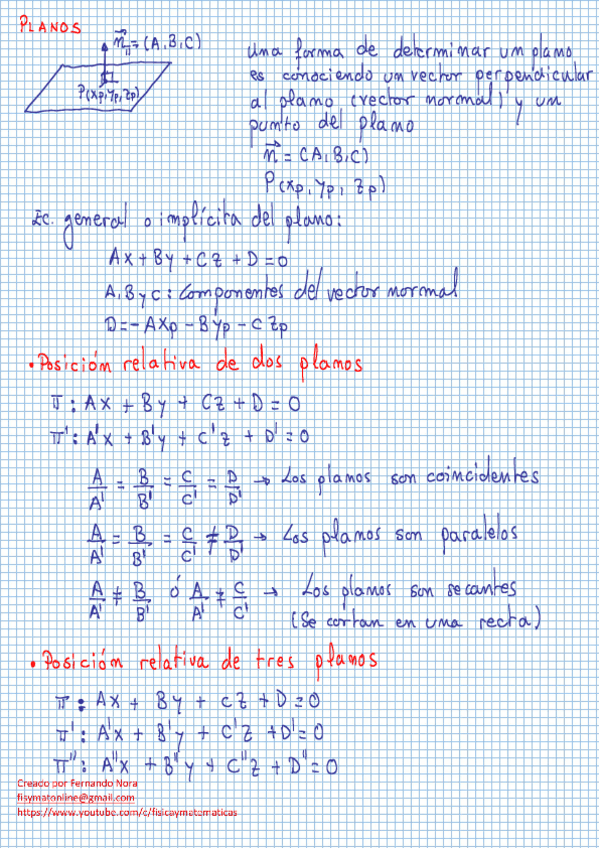 PLANOS
n⃗π = (A, B, C)
P(xp, yp, zp)
una forma de determinar un plano
es conociendo un vector perpendicular
al plano (vector normal) y un
punto del plano
n⃗ = (A, B, C)
P(xp, yp, zp)
Ec. general o implícita del plano:
Ax + By + Cz + D = 0
A, B y C: componentes del vector normal
D = -Axp - Byp - Czp
• Posición relativa de dos planos
π: Ax + By + Cz + D = 0
π': A'x + B'y + C'z + D' = 0
A/A' = B/B' = C/C' = D/D' → Los planos son coincidentes
A/A' = B/B' = C/C' ≠ D/D' → Los planos son paralelos
A/A' ≠ B/B' ó A/A' ≠ C/C' → Los planos son secantes
(Se cortan en una recta)
• Posición relativa de tres planos
π: Ax + By + Cz + D = 0
π': A'x + B'y + C'z + D' = 0
π'': A''x + B''y + C''z + D'' = 0
Creado por Fernando Nora
fisymatonline@gmail.com
https://www.youtube.com/c/fisicaymatematicas